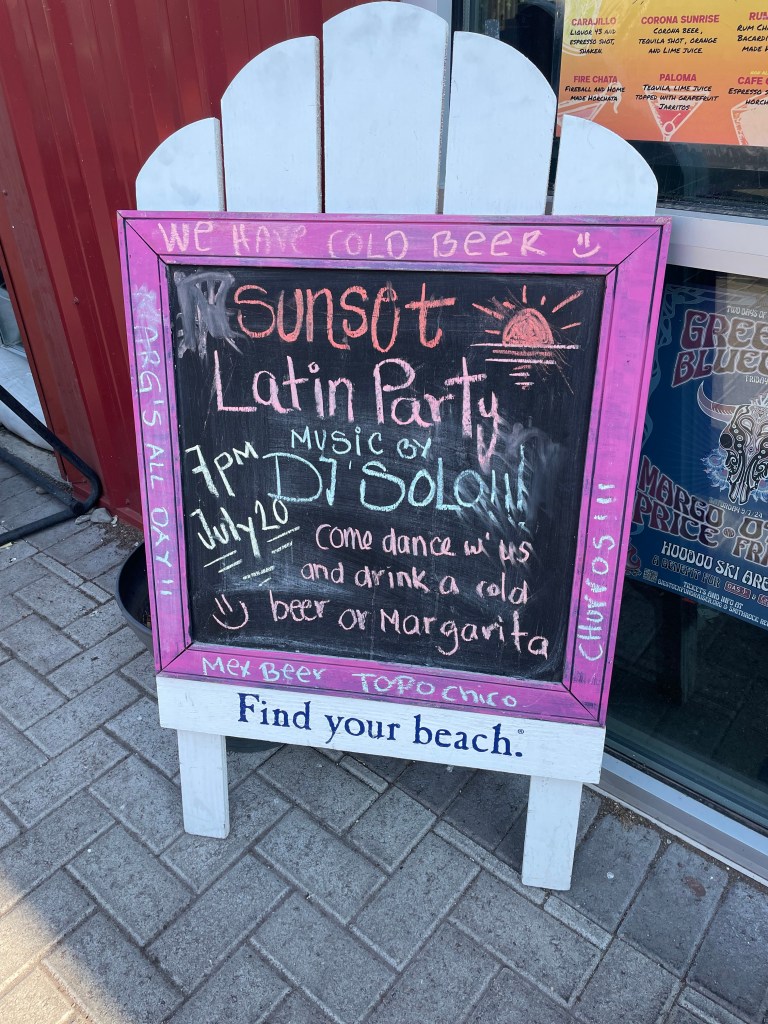 WE HAVE COLD BEER
MARG'S ALL DAY!!
Sunset
Latin Party
MUSIC BY
DJ SOLO!!!
7pm
July 20
come dance w' us
and drink a cold
beer or Margarita
CHUrros!!!
Mex Beer TOPO CHICO
Find your beach.®
CARAJILLO
LIQUOR 43 AND
ESPRESSO SHOT,
SHAKEN
CORONA SUNRISE
CORONA BEER,
TEQUILA SHOT, ORANGE
AND LIME JUICE.
RUM CH
BACARDI
MADE H
FIRE CHATA
FIREBALL AND HOME
MADE HORCHATA
PALOMA
TEQUILA, LIME JUICE
TOPPED WITH GRAPEFRUIT
JARRITOS
CAFE
ESPRESSO S
HORCH
TWO DAYS OF
GREE
BLUEG
FRIDAY
MARGO
PRICE
HOODOO SKI ARE
A BENEFIT FOR
TICKETS AND INFO AT